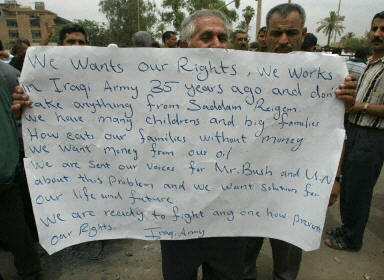 We Wants Our Rights, We Works
in Iraqi Army 35 years ago and don't
take anything from Saddam Reigem
we have many childrens and big families
How eats our families without money
we want money from our oil
We are sent our voices for Mr. Bush and U.N
about this problem and we want solution for
our life and future
we are ready to fight any one how prevent
our Rights Iraqi Army